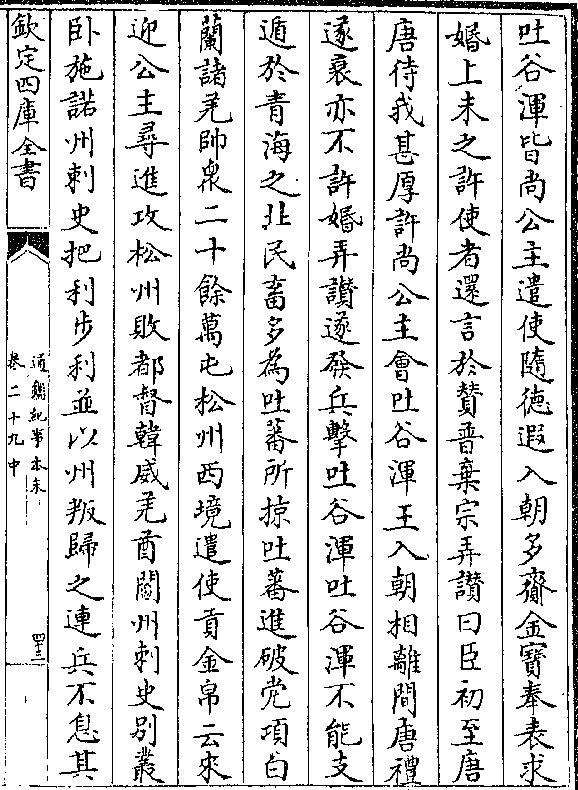 吐谷渾皆尚公主遣使隨德遐入朝多齎金寶奉表求
婚上未之許使者還言於贊普棄宗弄讃曰臣初至唐
唐待我甚厚許尚公主會吐谷渾王入朝相離間唐禮
遂衰亦不許婚弄讃遂發兵擊吐谷渾吐谷渾不能支
遁於青海之北民畜多為吐蕃所掠吐蕃進破党項白
蘭諸羌帥衆二十餘萬屯松州西境遣使貢金帛云來
迎公主尋進攻松州敗都督韓威羌酋闊州刺史别叢
卧施諾州刺史把利步利並以州叛歸之連兵不息其
欽定四庫全書
通鑑紀事本末
卷二十九中
四十三